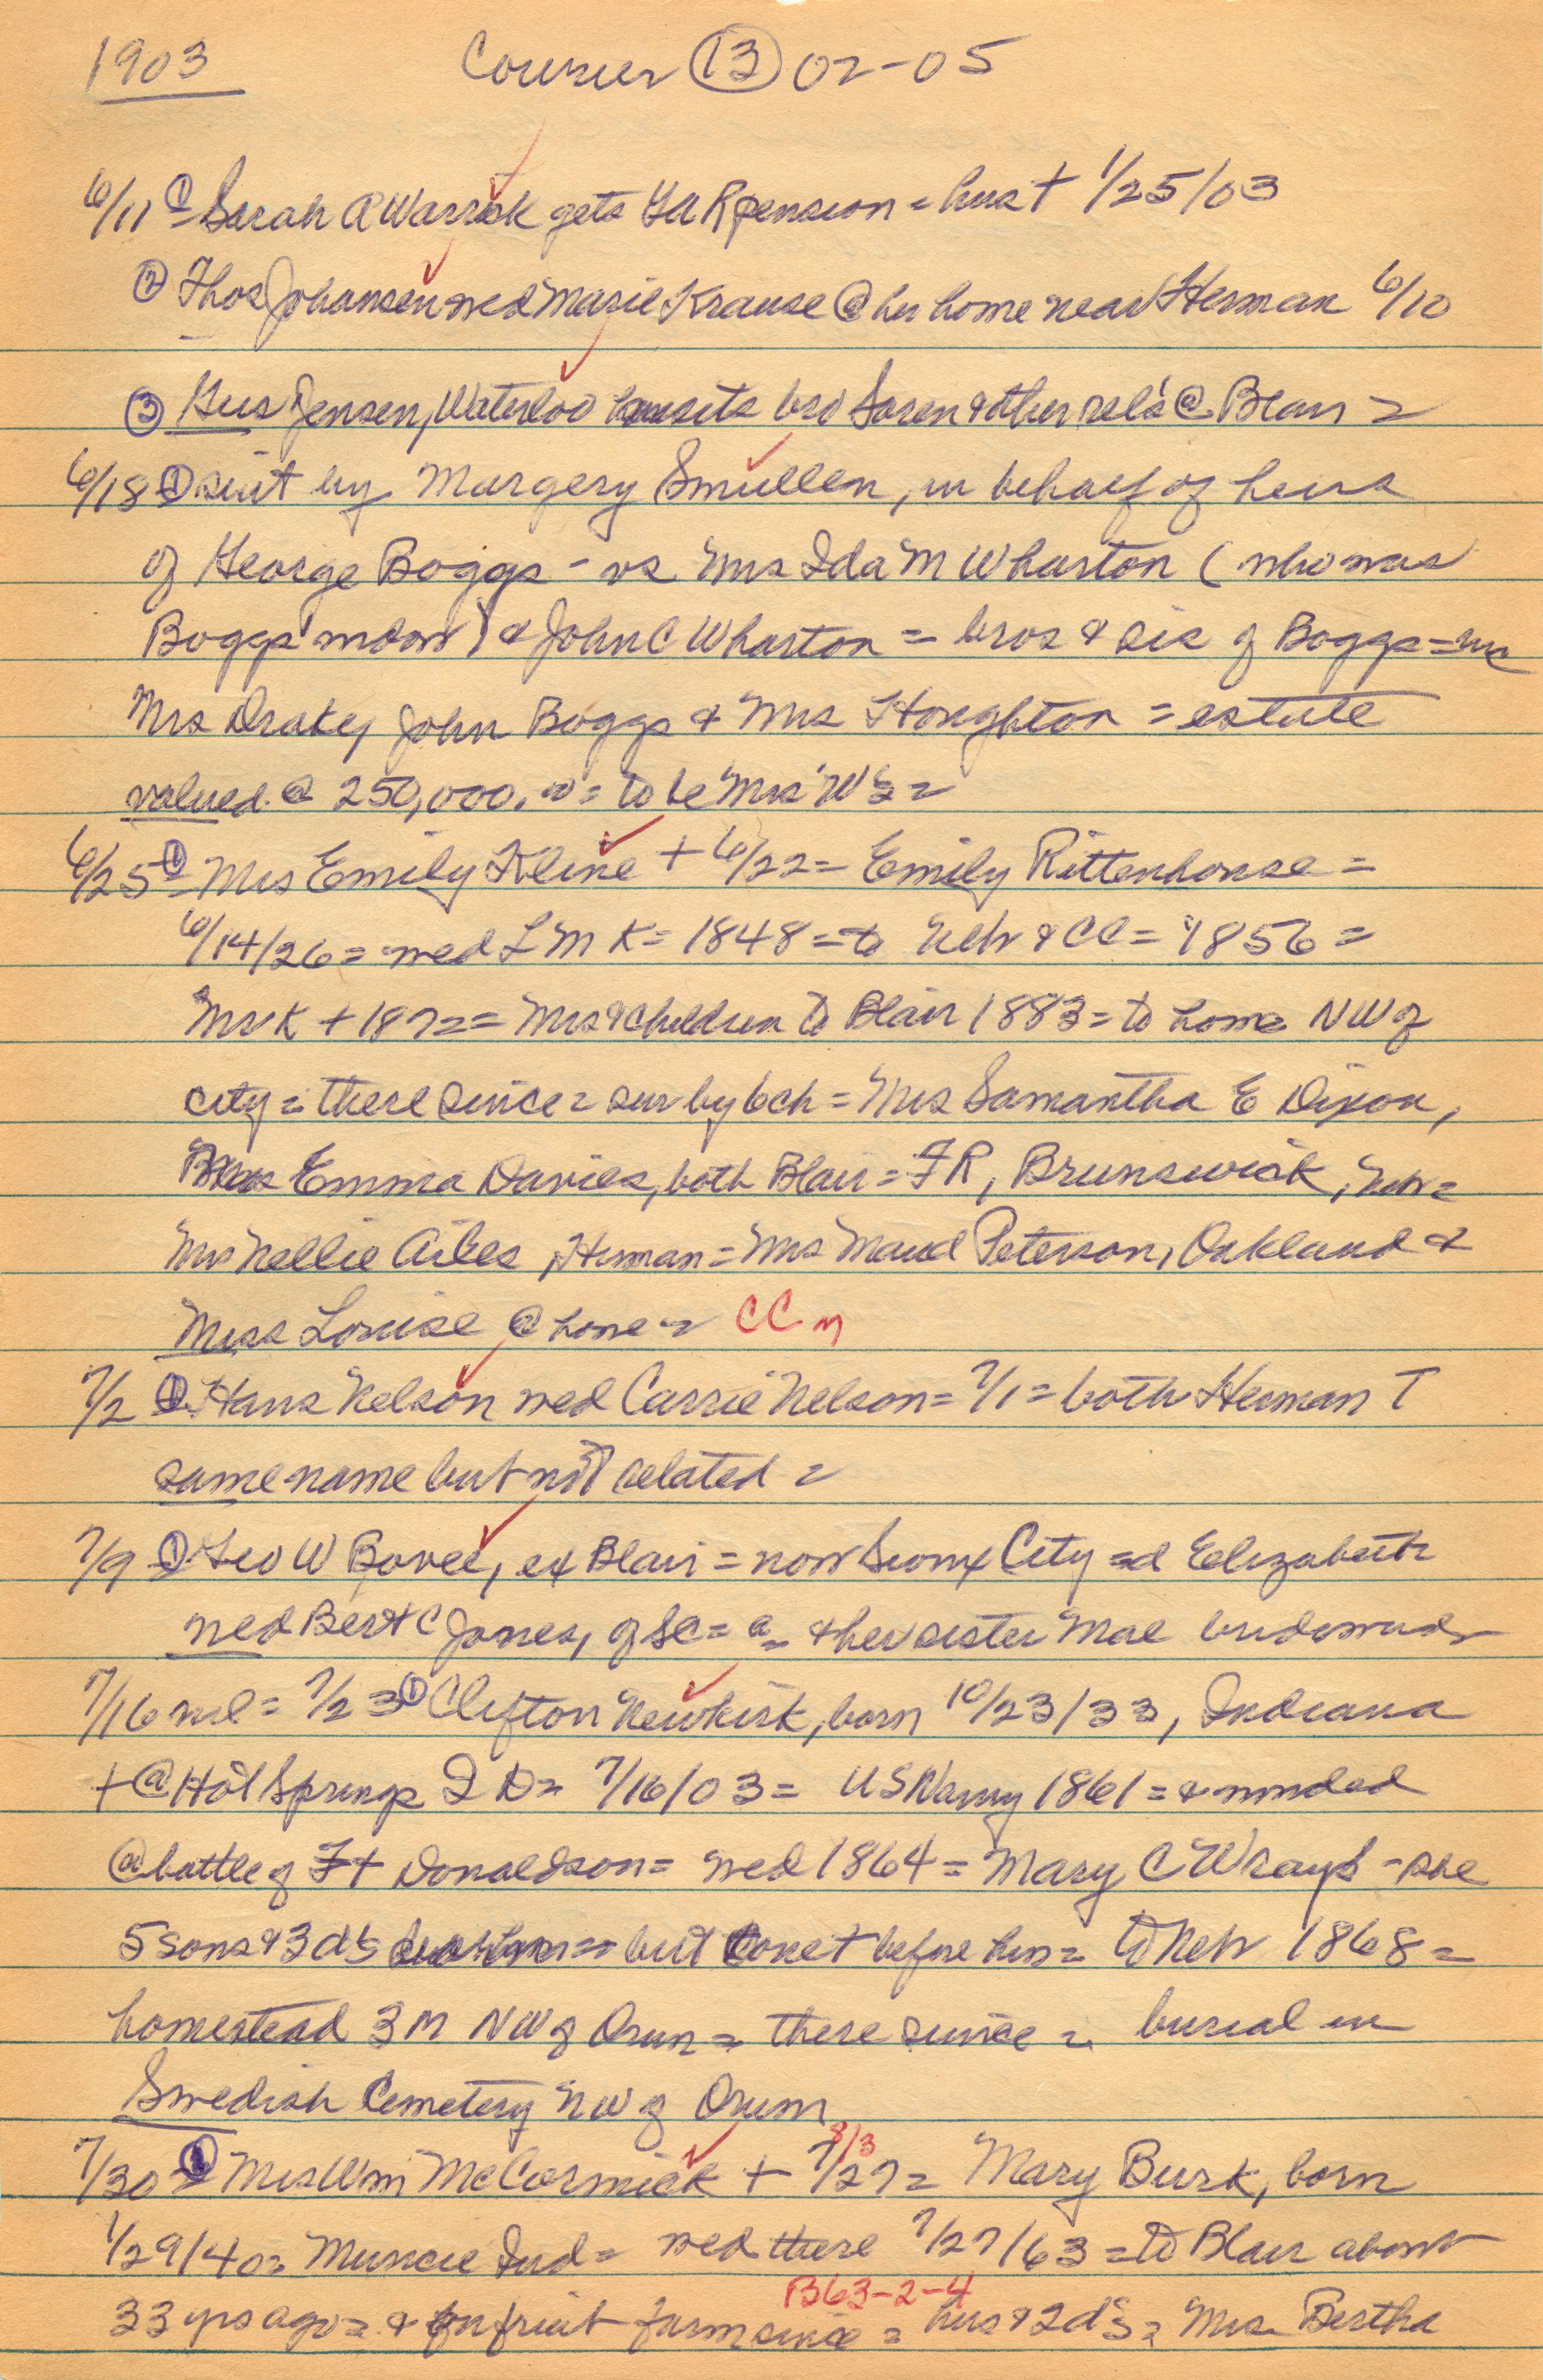 1903 Courier (13) 02-05
6/11 ① Sarah A Warrick gets GAR pension = hus + 1/25/03
② Thos Johansen wed Marie Krause @ her home near Herman 6/10
③ Gus Jensen, Waterloo visits bro Soren & other rels @ Blair =
6/18 ① suit by Margery Smullen, in behalf of heirs
of George Boggs - vs Mrs Ida M Wharton (who was
Boggs' widow) & John C Wharton = bros & sis of Boggs =
Mrs Drake, John Boggs & Mrs Houghton = estate
valued @ 250,000.00 = to be Mrs W's =
6/25 ① = Mrs Emily Kline + 6/22 = Emily Rittenhouse =
6/14/26 = wed L M K = 1848 = to Neb & CC = 1856 =
Mr K + 1872 = Mrs & children to Blair 1883 = to home NW of
city = there since = sur by 6 ch = Mrs Samantha E Dixon,
Mrs Emma Davies, both Blair = FR, Brunswick, Neb =
Mrs Nellie Ailes, Herman = Mrs Maud Peterson, Oakland &
Miss Louise @ home = CC
7/2 ① Hans Nelson wed Carrie Nelson = 7/1 = both Herman T
same name but not related =
7/9 ① Geo W Bovee, ex Blair = now Sioux City = d Elizabeth
wed Bert C Jones, of SC = & her sister Mae bridesmaid
7/16 nil = 7/23 ① Clifton Newkirk, born 10/23/33, Indiana
+ @ Hot Springs S D = 7/16/03 = US Navy 1861 = & wounded
@ battle of Ft Donaldson = wed 1864 = Mary C Wray - she
5 sons & 3 d's = but one + before him = to Neb 1868 =
homestead 3 M NW of Orum = there since = burial in
Swedish Cemetery NW of Orum
7/30 ① = Mrs Wm McCormick + 7/27 = 8/3 Mary Burk, born
1/29/40 = Muncie Ind = wed there 7/27/63 = to Blair about
33 yrs ago = & on fruit farm since = B63-2-4 hus & 2 d's = Mrs Bertha